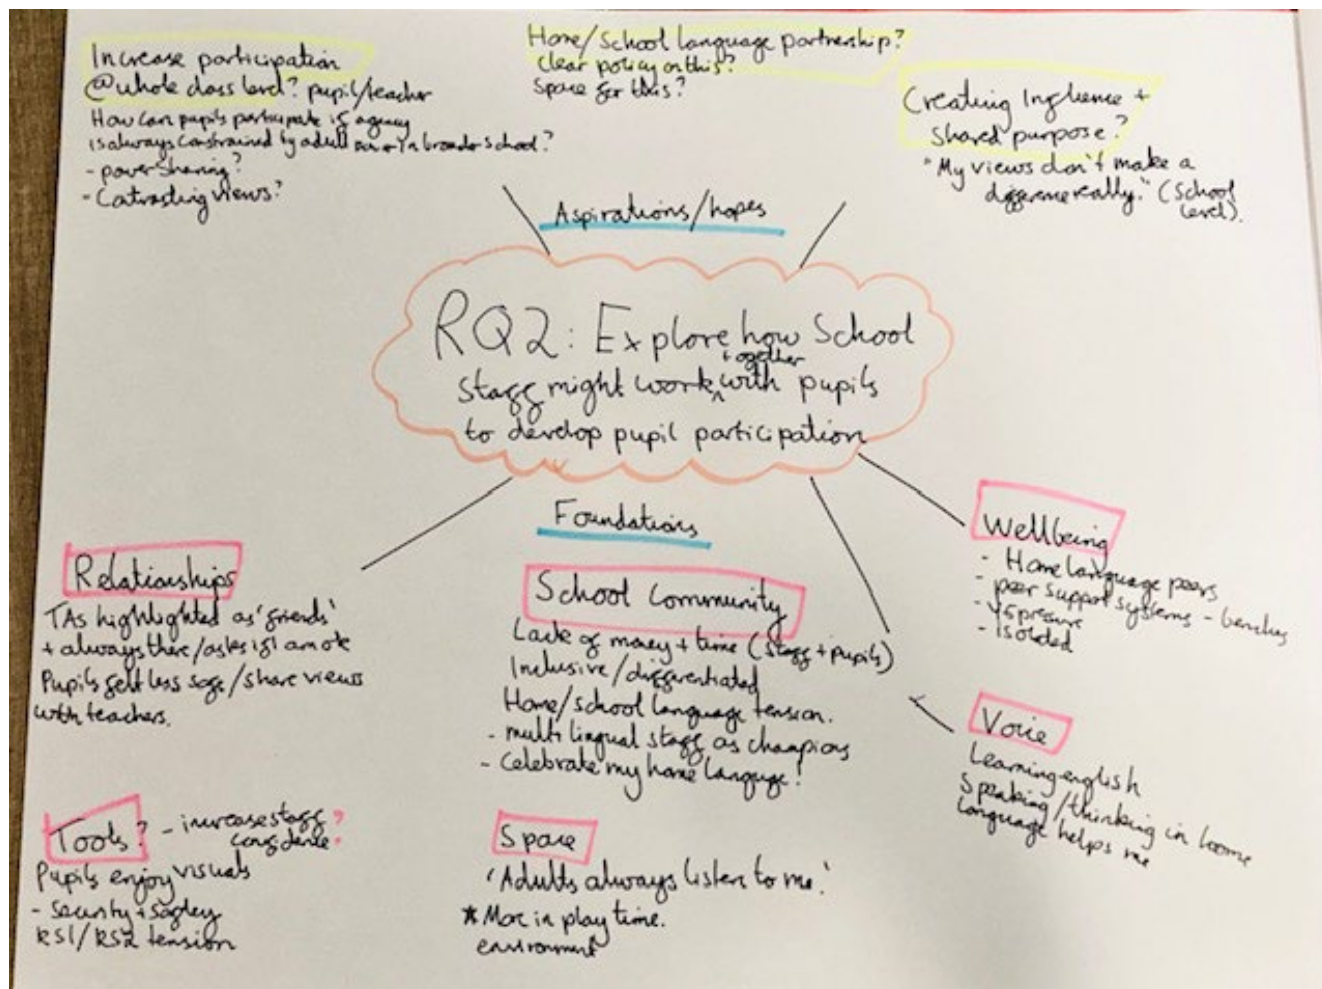 Increase participation
@whole class level? pupil/teacher
How can pupils participate if agency
is always constrained by adult or in broader school?
- power sharing?
- Contrasting views?
Home/School language partnership?
clear policy on this?
Space for this?
Creating Influence +
shared purpose?
"My views don't make a
difference really." (School
level).
Aspirations/hopes
RQ2: Explore how School
together
staff might work ^ with pupils
to develop pupil participation
Foundations
Relationships
TAs highlighted as 'friends'
+ always there/asks if I am ok
Pupils felt less safe/share views
with teachers.
School Community
Lack of money + time (staff + pupils)
Inclusive/differentiated
Home/school language tension.
- multi lingual staff as champions
- Celebrate my home language!
Wellbeing
- Home language peers
- peer support systems - benches
- Y5 pressure
- Isolated
Voice
Learning english
Speaking/thinking in home
language helps me
Tools? - increase staff ?
confidence?
Pupils enjoy visuals
- Security + safety
KS1/KS2 tension
Space
'Adults always listen to me.'
* More in play time.
environment